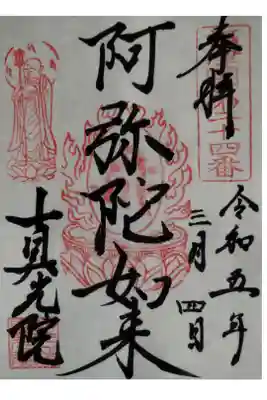 奉拝
令和五年
三月四日
阿弥陀如来
真光院